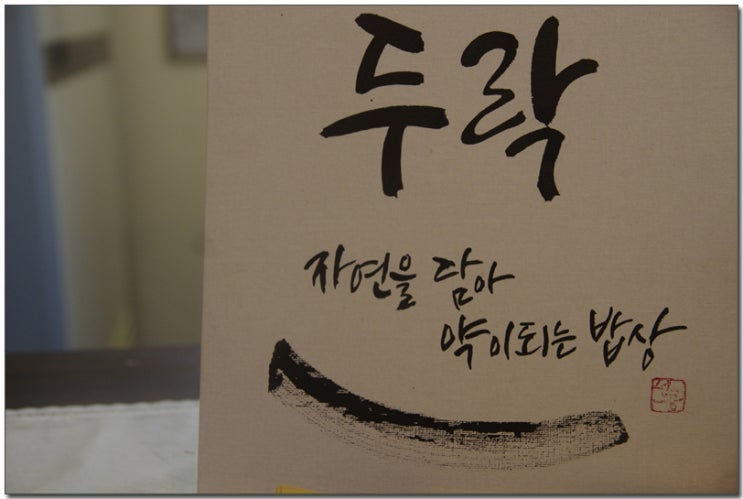 두락
자연을 담아
약이되는 밥상